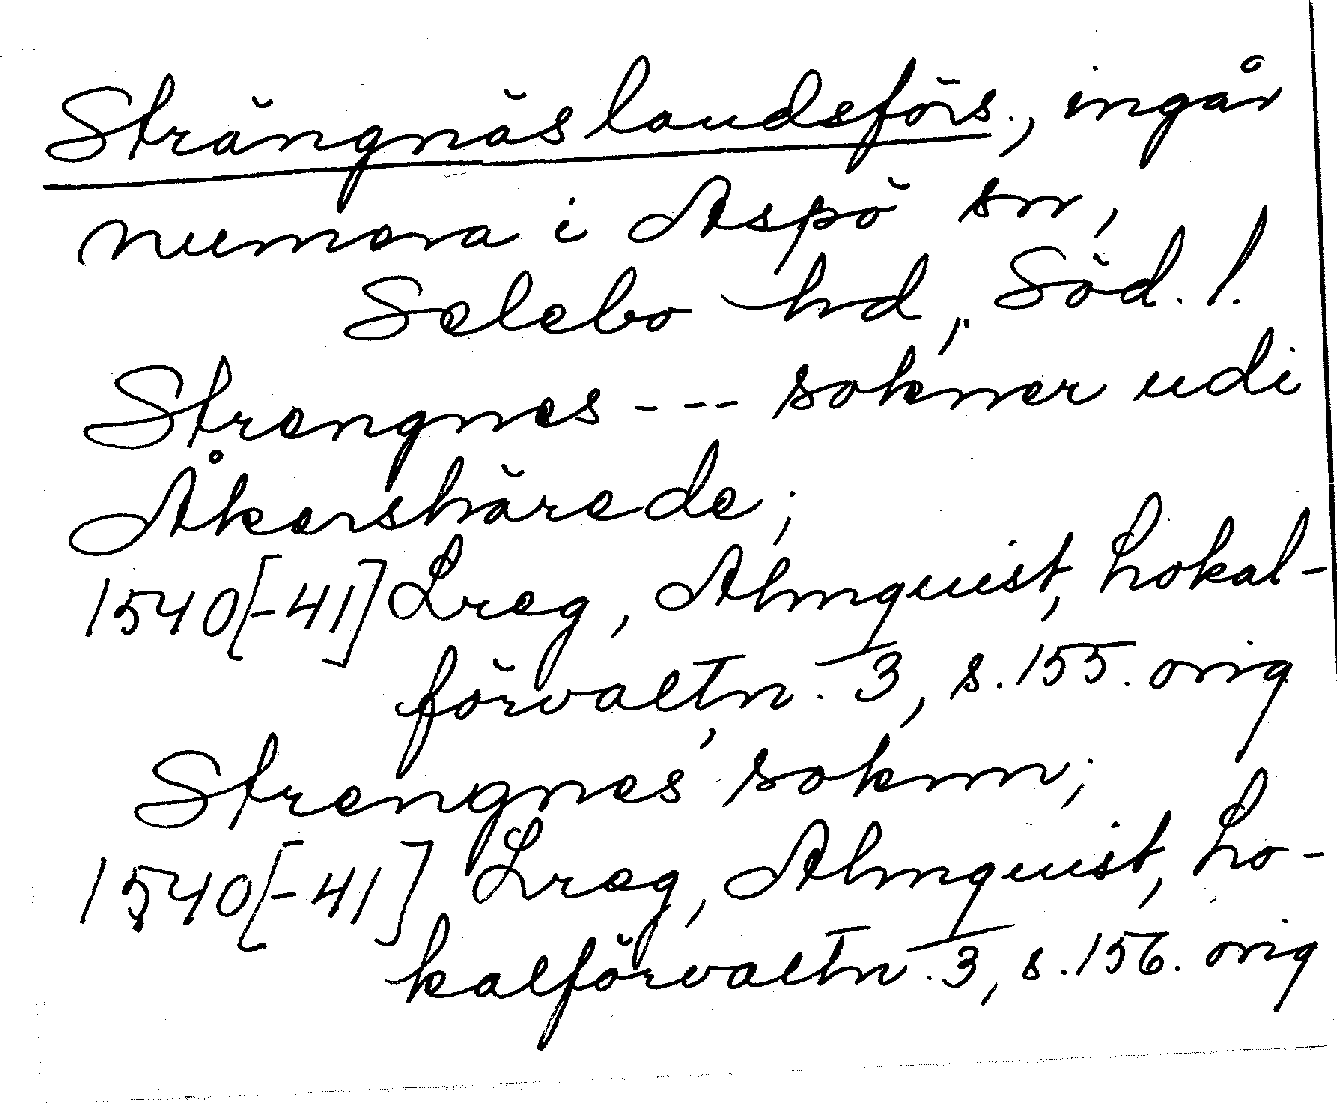 Strängnäs landsförs., ingår
numera i Aspö sn,
Selebo hd, Söd. l.
Strengnes --- sokner udi
Åkershärede;
1540[-41] Lreg, Almquist, Lokal-
förvaltn. 3, s. 155. orig
Strengnes' soknn;
1540[-41] Lreg, Almquist, Lo-
kalförvaltn. 3, s. 156. orig